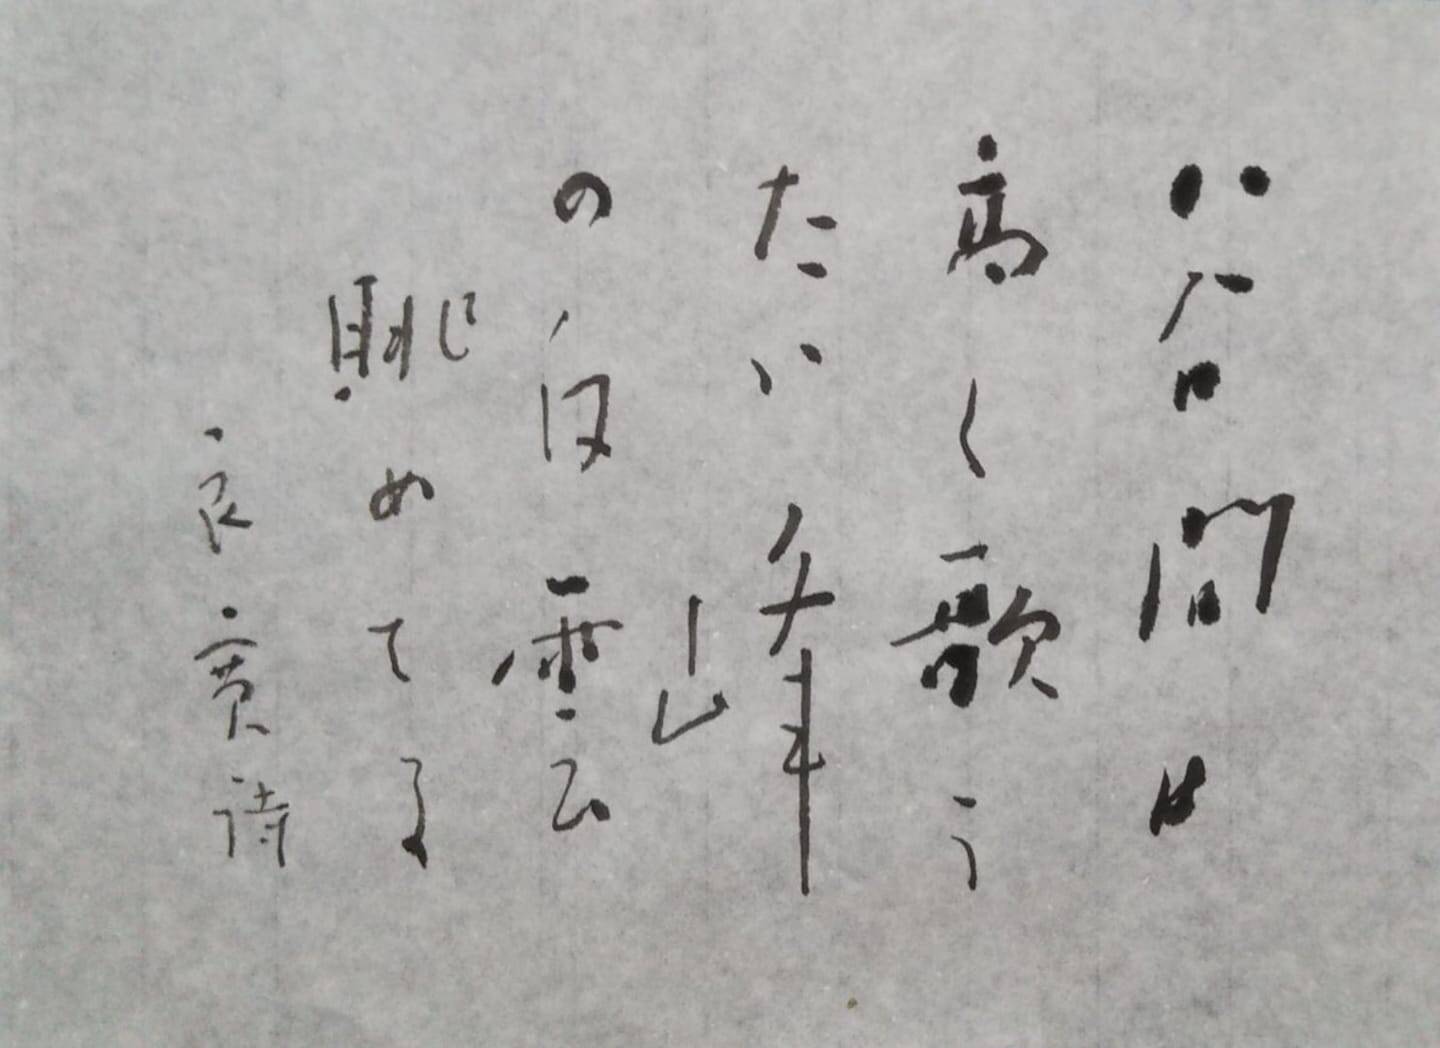 谷間
高く歌う
たい峰
の白雲
眺めてる
良寛詩